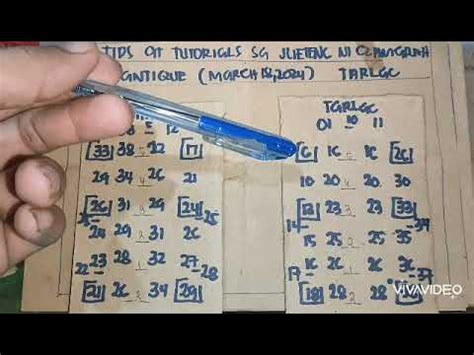 TIPS AT TUTORIALS SA JUETENG NI
ANTIQUE (MARCH 18, 2024) TARLAC
8 5 12
33 38 22 17
29 34 26 21
26 31 29 24 25
24 29 31 26
22 23 28 32 27 28
21 26 34 29
TARLAC
01 10 11
6 16 16 26
10 20 20 30
14 13 23 23 33 37
15 25 25 35
17 16 26 26 36 37
18 28 28
VIVAVIDEO